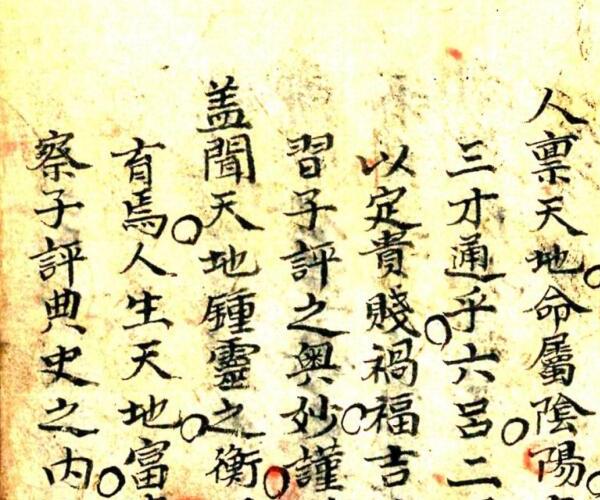 人禀天地命屬陰陽
三才通乎六呂二
以定貴賤禍福吉
習子評之奧妙謹
盖聞天地鍾靈之衡
育焉人生天地富
察子評典史之内